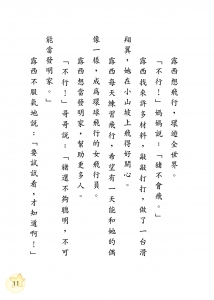 露西想飛行，環遊全世界。
「不行！」媽媽說：「豬不會飛。」
露西找來許多材料，敲敲打打，做了一台滑
翔翼，她在小山坡上飛得好開心。
露西每天練習飛行，希望有一天能和她的偶
像一樣，成為環球飛行的女飛行員。
露西想當發明家，幫助更多人。
「不行！」哥哥說：「豬還不夠聰明，不可
能當發明家。」
露西不服氣地說：「要試試看，才知道啊！」
11